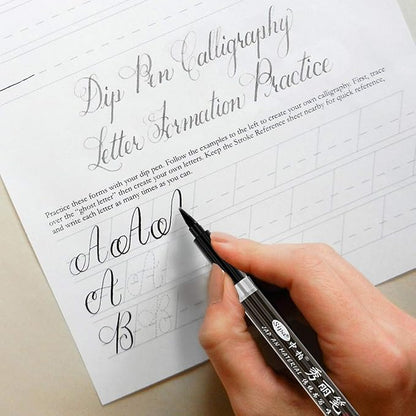 Dip Pen Calligraphy
Letter Formation Practice
Practice these forms with your dip pen. Follow the examples to the left to create your own calligraphy. First, trace
over the "ghost letter" then create your own letters. Keep the Stroke Reference sheet nearby for quick reference,
and write each letter as many times as you can.
A A A
A A A
B B
中柏 秀丽笔
JAPAN MATERIAL